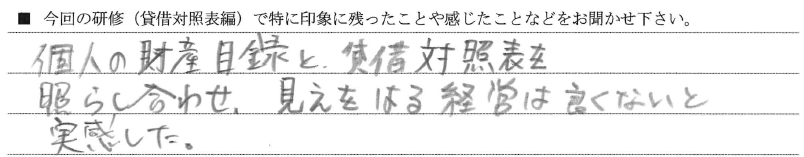 ■ 今回の研修（貸借対照表編）で特に印象に残ったことや感じたことなどをお聞かせ下さい。
個人の財産目録と、貸借対照表を
照らし合わせ、見えをはる経営は良くないと
実感した。